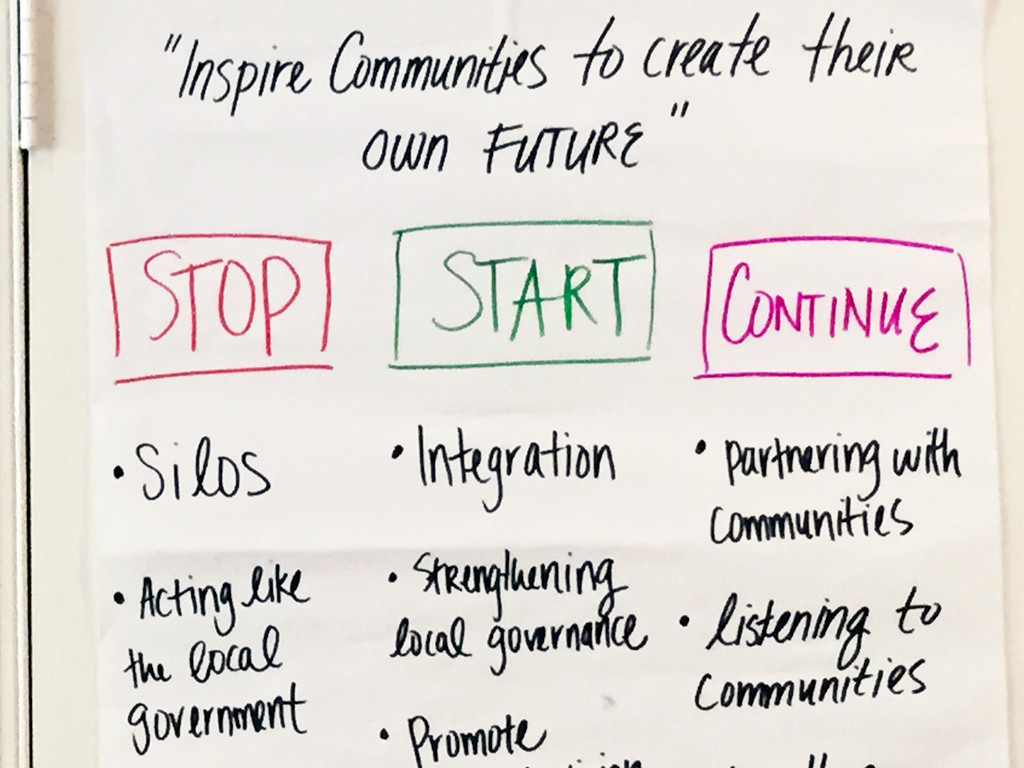 "Inspire Communities to create their
own FUTURE"
STOP
START
CONTINUE
• Silos
• Acting like
the local
government
• Integration
• Strengthening
local governance
• Promote
• partnering with
communities
• listening to
communities